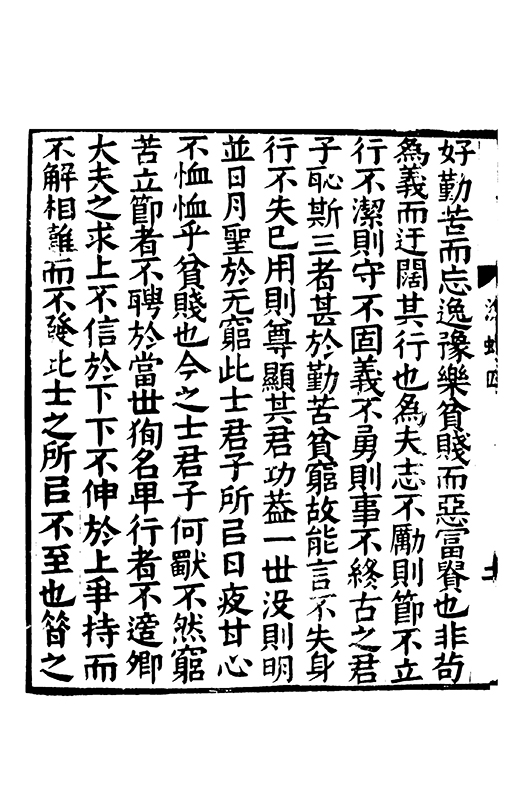 好勤苦而忘逸豫樂貧賤而惡富貴也非茍
為義而迂闊其行也為夫志不勵則節不立
行不潔則守不固義不勇則事不終古之君
子恥斯三者甚於勤苦貧窮故能言不失身
行不失已用則尊顯其君功葢一世没則明
並日月聖於无窮此士君子所㠯日夜甘心
不恤恤乎貧賤也今之士君子何獸不然窮
苦立節者不聘於當世徇名卑行者不遵卿
大夫之求上不信於下下不伸於上爭持而
不解相離而不發此士之所㠯不至也昝之